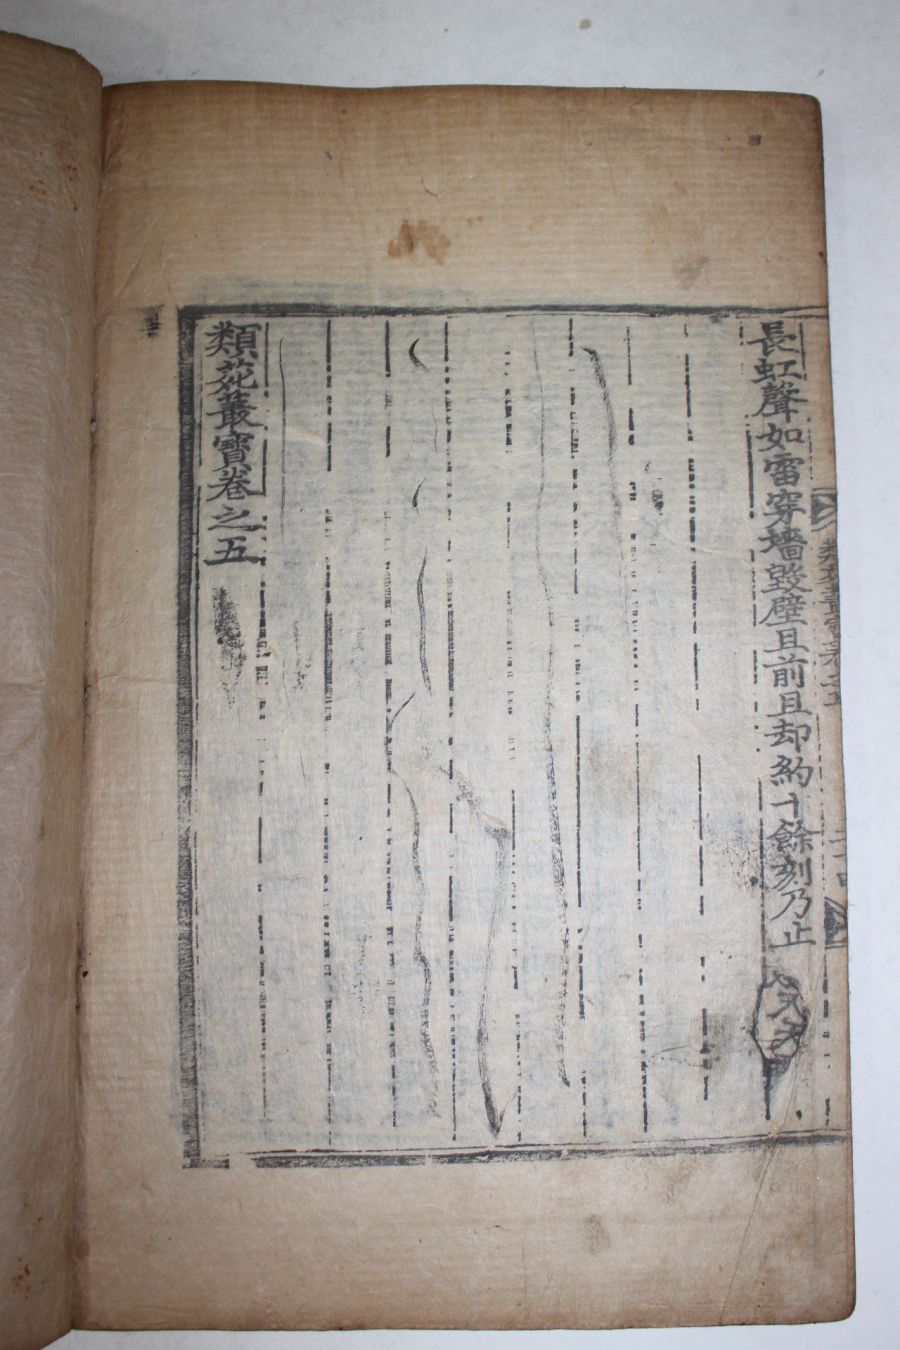 類苑叢寶卷之五
長虹聲如雷穿墻毀壁且前且却約十餘刻乃止
類苑叢寶卷之五